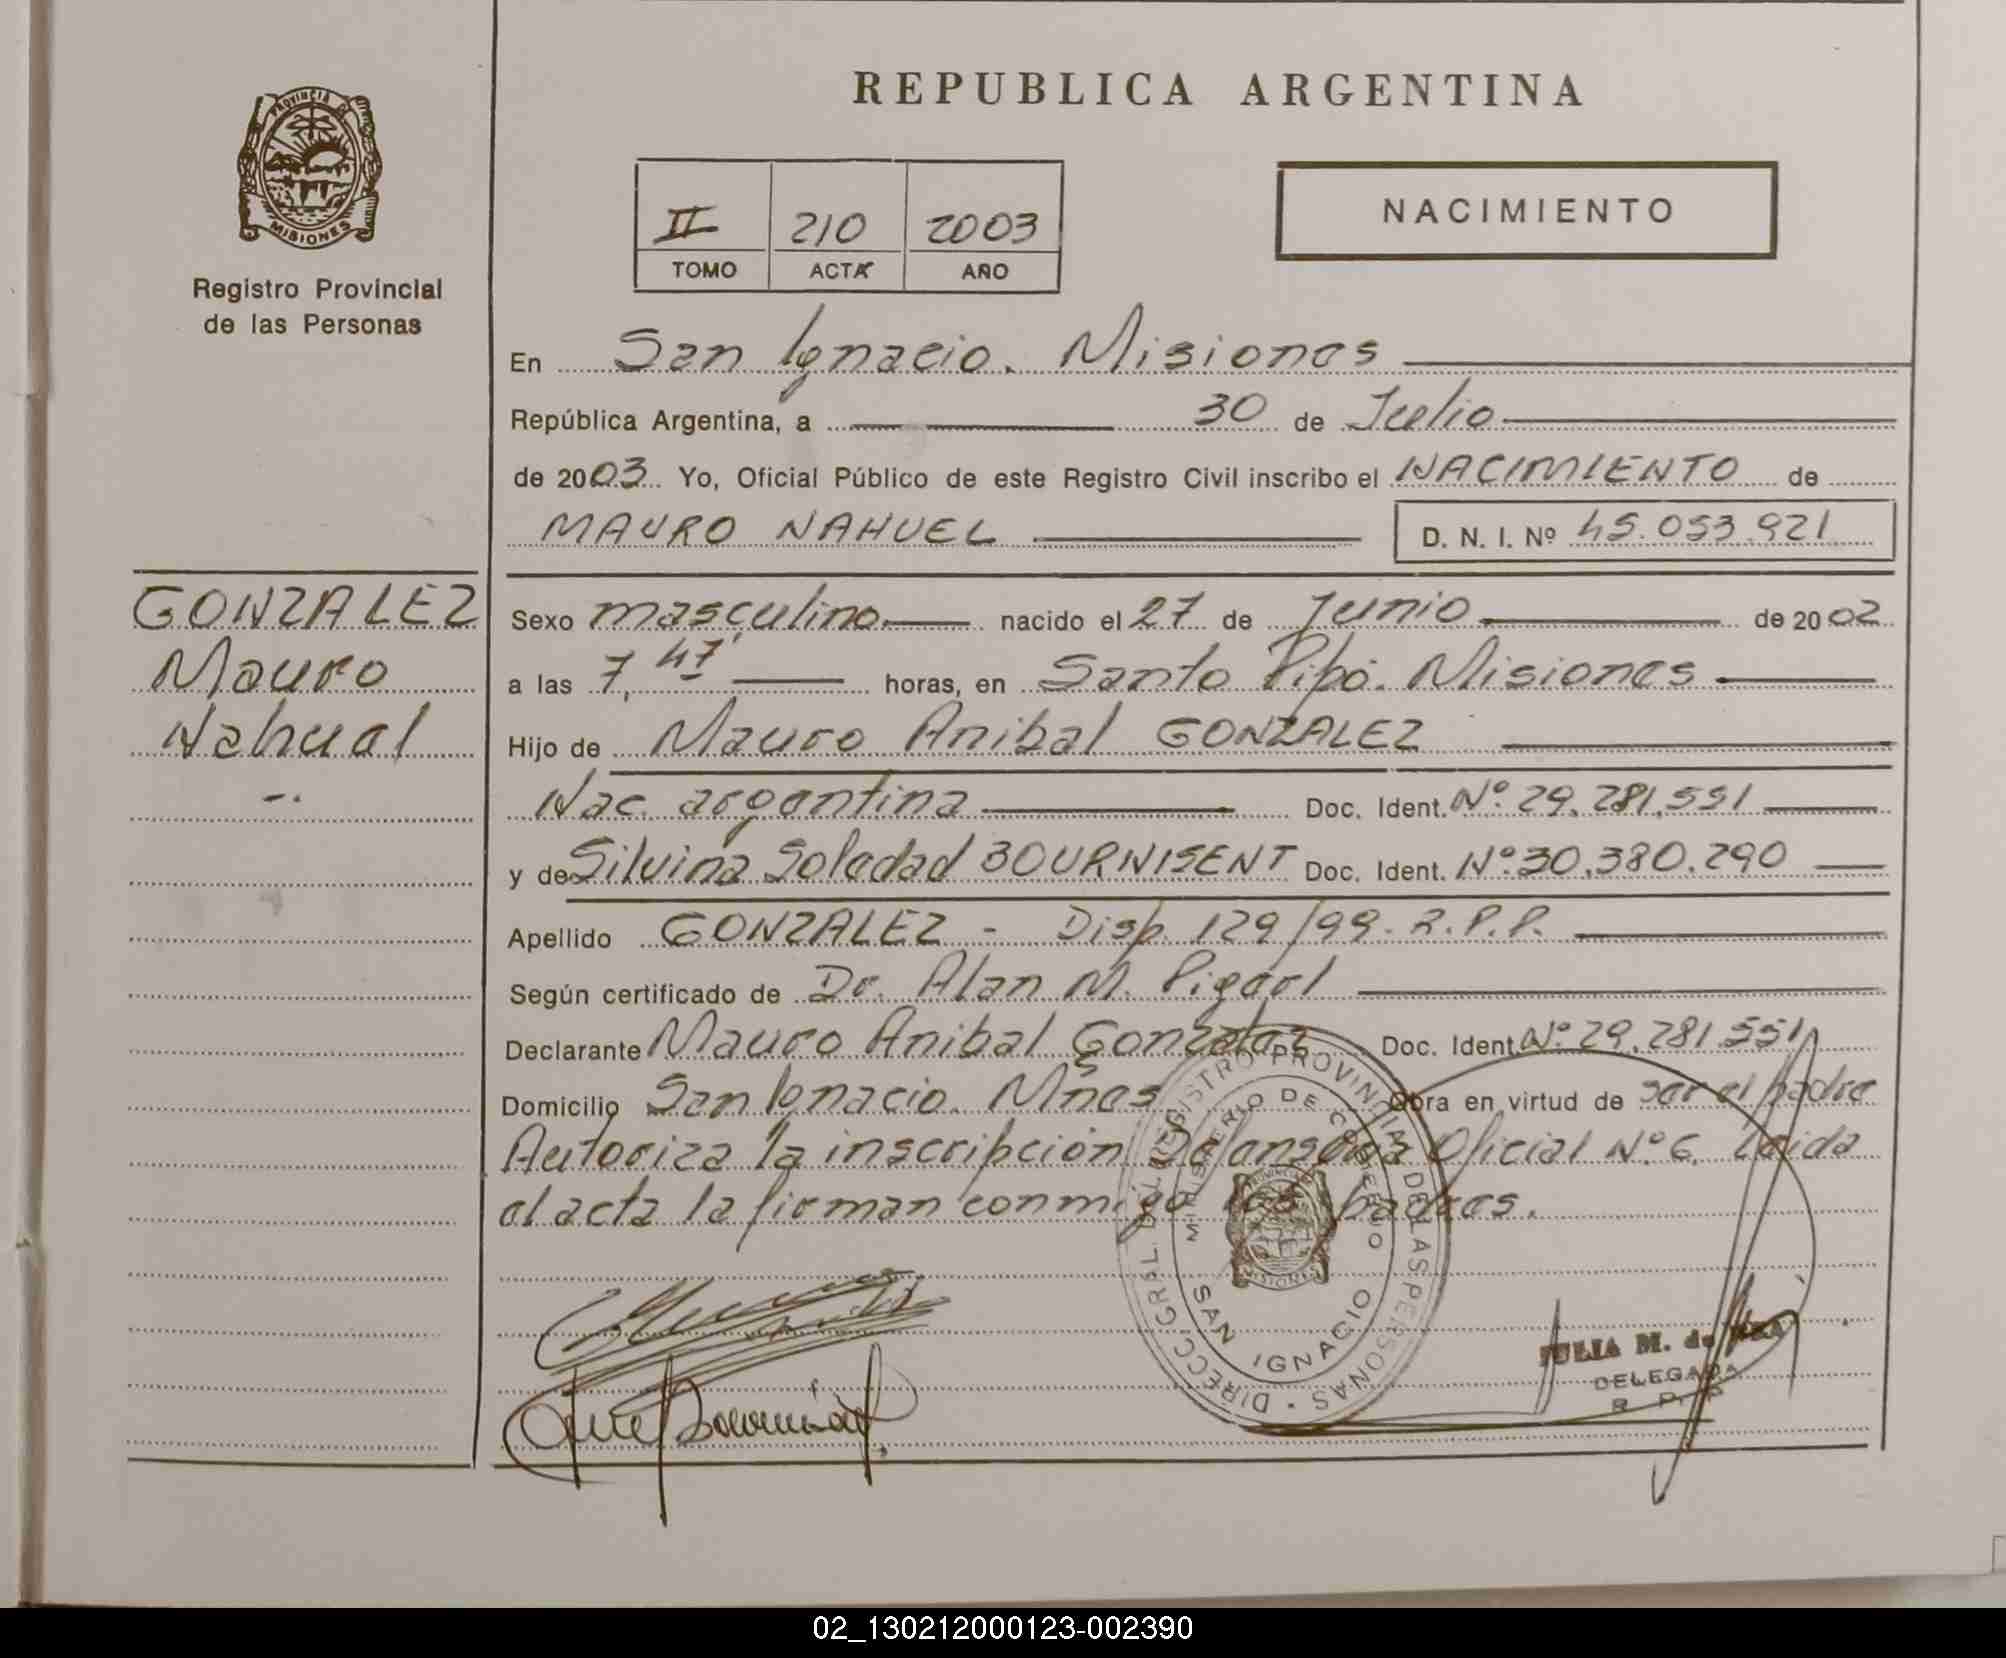 REPUBLICA ARGENTINA
PROVINCIA DE
MISIONES
Registro Provincial
de las Personas
II 210 2003
TOMO ACTA AÑO
NACIMIENTO
En San Ignacio. Misiones
República Argentina, a 30 de Julio
de 2003 Yo, Oficial Público de este Registro Civil inscribo el NACIMIENTO de
MAURO NAHUEL D. N. I. Nº 45.053.921
GONZALEZ
Mauro
Nahuel
Sexo masculino nacido el 27 de Junio de 2002
a las 7,47' horas, en Santo Pipó. Misiones
Hijo de Mauro Anibal GONZALEZ
Nac. argentina Doc. Ident. Nº: 29.281.551
y de Silvina Soledad BOURNISENT Doc. Ident. Nº: 30.380.290
Apellido GONZALEZ - Disp. 129/99. R.P.P.
Según certificado de Dr. Alan M.
Declarante Mauro Anibal Gonzalez Doc. Ident. Nº: 29.281.551
Domicilio San Ignacio. Mnes Obra en virtud de ser el padre
Autoriza la inscripción Defensoría Oficial Nº 6. Leida
el acta la firman conmigo los padres.
DIRECC. GRAL. DEL REGISTRO PROVINCIAL DE LAS PERSONAS
MINISTERIO DE GOBIERNO
MISIONES
SAN IGNACIO
JULIA M. de
DELEGADA
R. P. P.
02_130212000123-002390